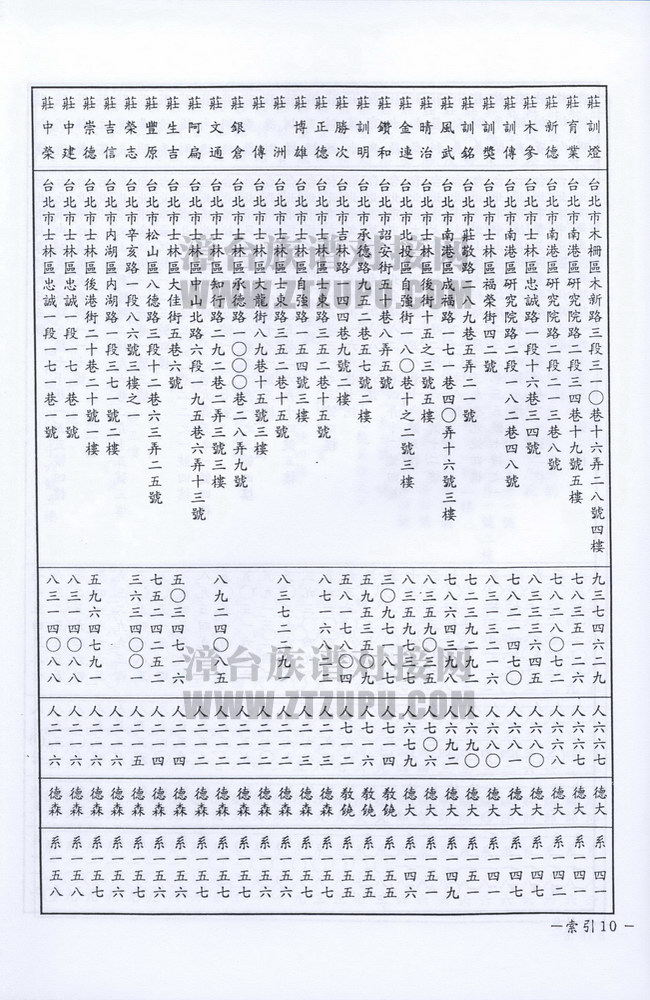 莊訓燈 台北市木柵區木新路三段三一〇巷十六弄二八號四樓 九三七四六二九 人六六七 德大 系一四一
莊育業 台北市南港區研究院路二段二三四巷十九號五樓 七八三五一二六 人六六七 德大 系一四一
莊新德 台北市南港區研究院路二段二一三巷八號 七八二八〇七二 人六六八 德大 系一四二
莊木參 台北市士林區忠誠路一段十六巷三四號 八三三三六四五 人六八〇 德大 系一四四
莊訓傳 台北市南港區研究院路二段一八二巷四八號 七八二一四七〇 人六八一 德大 系一四七
莊訓獎 台北市士林區福榮街四二號 八三一三二 人六 德大 系一四七
莊訓銘 台北市莊敬路二八九巷五弄二一號 七二三九二九二 人六九〇 德大 系一五一
莊風武 台北市南港區成福路一七一巷四〇弄十六號三樓 七八六四三八八 人六九二 德大 系一四九
莊晴治 台北市士林區後街十五之三號五樓 八三五九〇三五 人七〇六 德大 系一五一
莊金連 台北市北投區自強街一八〇巷十之二號三樓 八三五九七三 人六七九 德大 系一四六
莊鑽和 台北市詔安街五十巷八弄五號 三〇九 八七 人七一四 敎鐃 系一五五
莊訓明 台北市承德路九五二巷五七號二樓 人七一六 敎鐃 系一五五
莊勝次 台北市吉林路四四巷九號二樓 五八一七 人七一二 敎鐃 系一五五
莊正德 台北市士林區 東路三五二巷十五號 八七一六八二 人二一二 德森 系一五六
莊博雄 台北市士林區自強路一五四號三樓 人二一三 德森 系一五七
莊洲 台北市士林區 路三五二巷十五號 八三七二二九一 人二一二 德森 系一五六
莊傳 台北市士林區大龍街八九巷十五號三樓 人二一二 德森 系一五
莊銀倉 台北市士林區承德路一〇〇〇巷二八弄九號 人二一二 德森 系一五
莊文通 台北市士林區知行路二九二巷二弄三號三樓 八九二四〇八五 人二一二 德森 系一五七
莊阿扁 台北市士林區中山北路六段一九五巷六弄十三號 人二一 德森 系一五七
莊生吉 台北市士林區大佳街五巷六號 五〇三四七一六 人二一四 德森 系一五六
莊豐原 台北市松山區八德路三段十二巷六三弄二五號 七五二四二五二 人二一四 德森 系一五七
莊榮志 台北市辛亥路一段八六號三樓之一 三六三四〇〇一 人二一五 德森 系一五
莊吉信 台北市內湖區內湖路一段三七一號二樓 人二一六 德森 系一五六
莊崇德 台北市士林區後港街二十巷二十號一樓 五九六四七九一 人二一六 德森 系一五七
莊中建 台北市士林區忠誠一段一七一巷一號 八三一四〇八八 人二一六 德森 系一五八
莊中榮 台北市士林區忠誠一段一七一巷一號 八三一四〇八八 人二一六 德森 系一五八
漳台族谱对接网
WWW.ZTZUPU.COM
漳台族谱对接网
WWW.ZTZUPU.COM
—索引10－